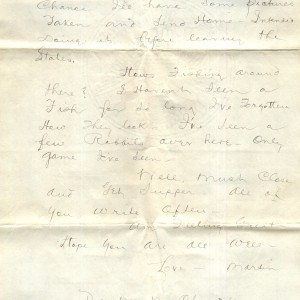 Chance I'll have some pictures
Taken and send Home. Intended
doing it before leaving the
States.
Hows Fishing around
there? I Haven't Seen a
Fish for so long I've Forgotten
How They look. I've Seen a
few Rabbits over here. Only
game I've Seen.
Well, Must Close
and Get Supper. All of
you Write Often.
Hope You are all Well.
Love - Martin